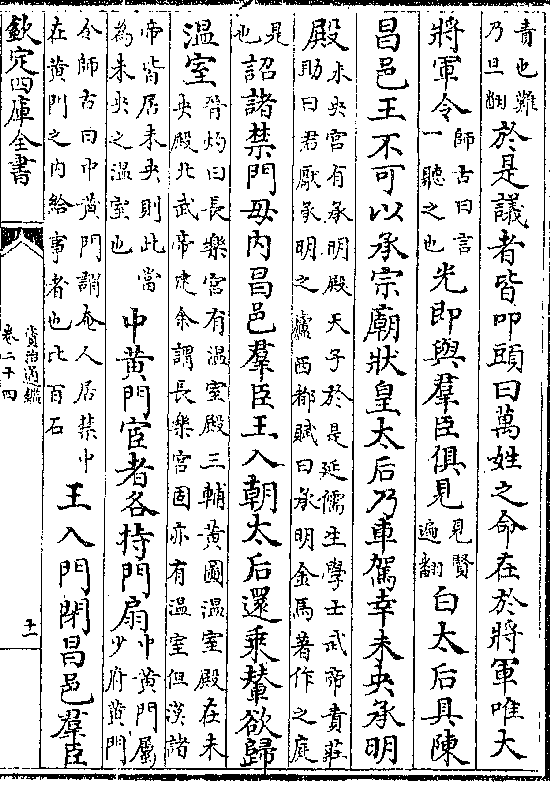 青也難乃旦翻於是議者皆叩頭曰萬姓之命在於將軍唯大
將軍令師古曰言一聽之也光即與羣臣俱見見賢遍翻白太后具陳
昌邑王不可以承宗廟狀皇太后乃車駕幸未央承明
殿未央宮有承明殿天子於是延儒生學士武帝責莊助曰君厭承明之廬西都賦曰承明金馬著作之庭
是也詔諸禁門毋内昌邑羣臣王入朝太后還乗輦欲歸
温室晉灼曰長樂宮有温室殿三輔黃圖温室殿在未央殿北武帝建余謂長樂宮固亦有温室但漢諸
帝皆居未央則此當為未央之温室也中黃門宦者各持門扇中黃門屬少府黃門
令師古曰中黃門謂奄人居禁中在黃門之内給事者也比百石王入門閉昌邑羣臣
欽定四庫全書
資治通鑑
卷二十四
十一